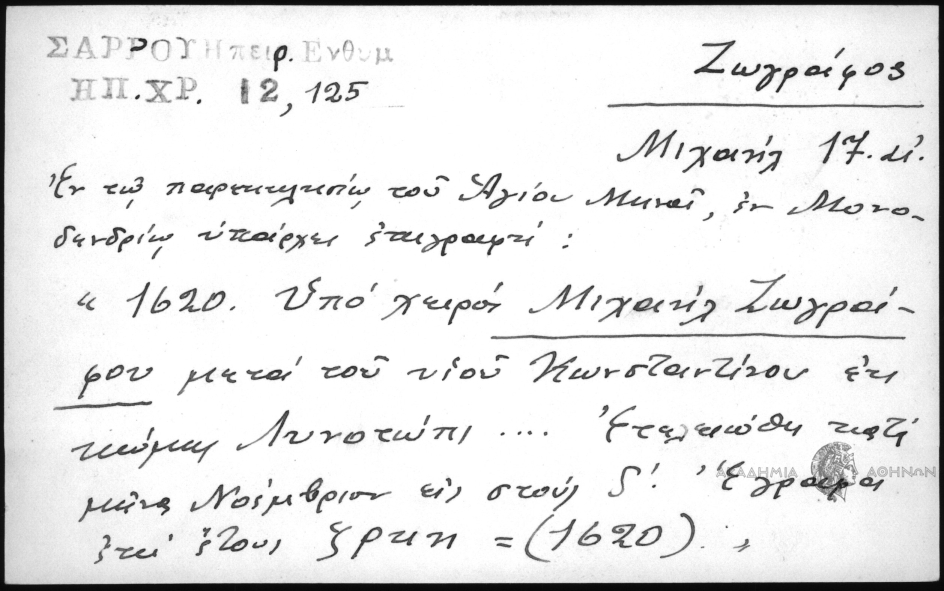 ΣΑΡΡΟΥ Ηπειρ. Ενθυμ
ΗΠ.ΧΡ. 12, 125
Ζωγράφος
Μιχαήλ 17. αἰ.
Ἐν τῷ παρεκκλησίῳ τοῦ Ἁγίου Μηνᾶ, ἐν Μονο-
δενδρίῳ ὑπάρχει ἐπιγραφή :
„ 1620. Ὑπό χειρός Μιχαήλ Ζωγρά-
φου μετά τοῦ υἱοῦ Κωνσταντίνου ἐκ
κώμης Λυνοτώπι .... Ἐτελειώθη κατά
μῆνα Νοέμβριον εἰς στούς ς΄. Ἔγραφα
ἐπί ἔτους ζρκη = (1620). „
ΑΚΑΔΗΜΙΑ ΑΘΗΝΩΝ